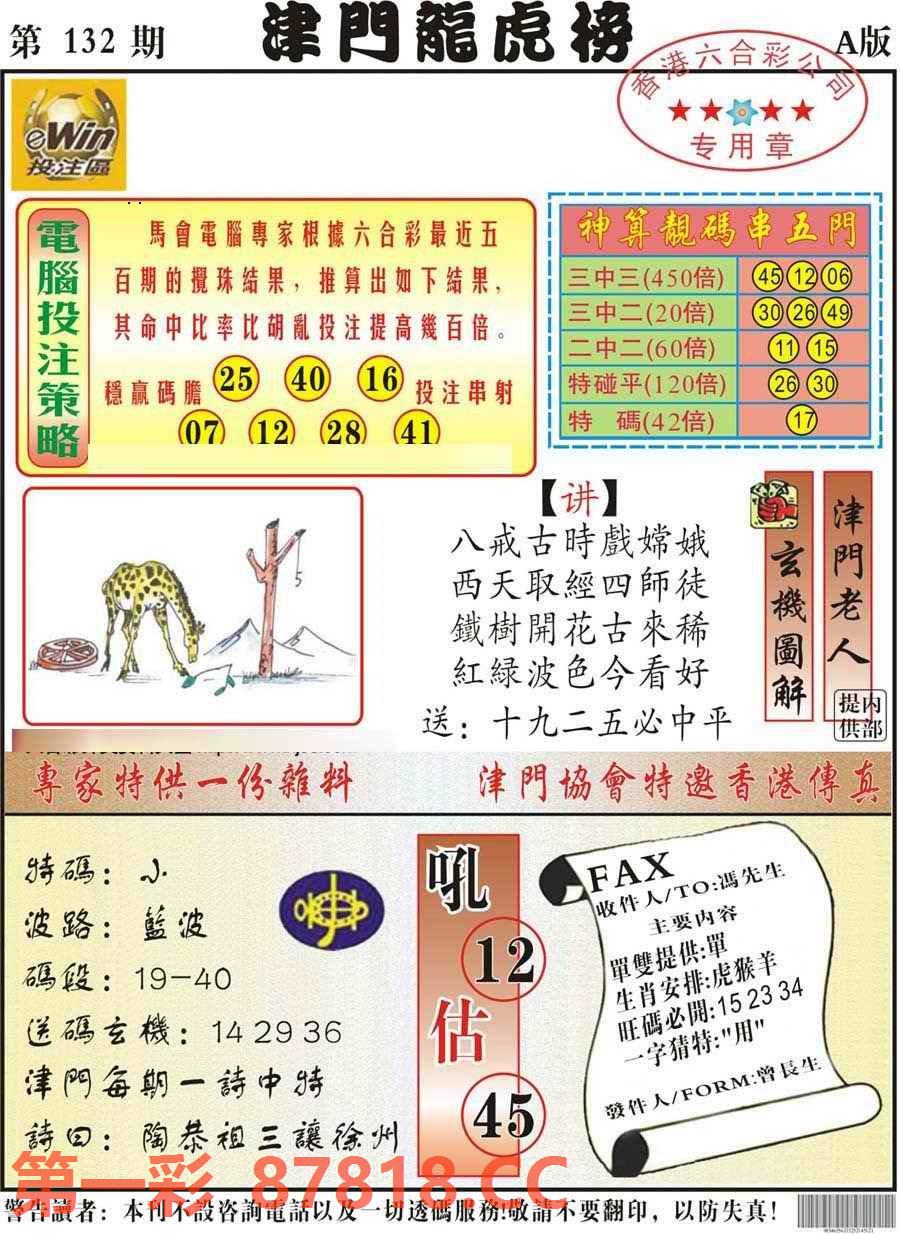 第 132 期
津門龍虎榜
A版
香港六合彩公司
专用章
eWin
投注區
電腦投注策略
馬會電腦專家根據六合彩最近五
百期的攪珠結果，推算出如下結果，
其命中比率比胡亂投注提高幾百倍。
穩贏碼膽 25 40 16 投注串射
07 12 28 41
神算靚碼串五門
三中三(450倍) 45 12 06
三中二(20倍) 30 26 49
二中二(60倍) 11 15
特碰平(120倍) 26 30
特 碼(42倍) 17
5
【讲】
八戒古時戲嫦娥
西天取經四師徒
鐵樹開花古來稀
紅緑波色今看好
送：十九二五必中平
玄機圖解
津門老人
内部提供
專家特供一份雜料
津門協會特邀香港傳真
特碼：小
波路：藍波
碼段：19-40
送碼玄機：14 29 36
津門每期一詩中特
詩曰：陶恭祖三讓徐州
吼
12
估
45
FAX
收件人/TO:馮先生
主要内容
單雙提供:單
生肖安排:虎猴羊
旺碼必開:15 23 34
一字猜特:"用"
發件人/FORM:曾長生
第一彩 87818.CC
警告讀者：本刊不設咨詢電話以及一切透碼服務!敬請不要翻印，以防失真!